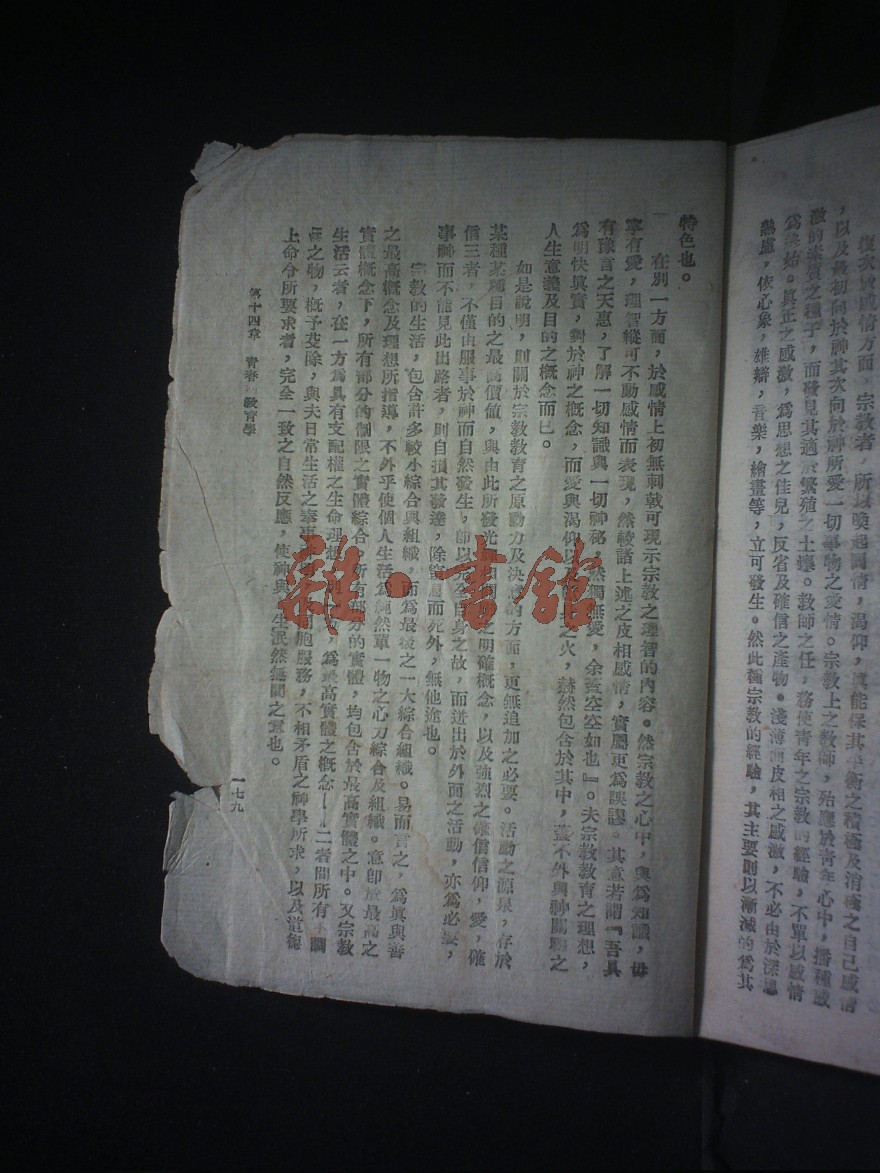 復次於感情方面。宗教者，所以喚起同情，渴仰，其能保其平衡之積極及消極之自己感情
，以及最初向於神其次向於神所愛一切事物之愛情。宗教上之教師，殆應於青年心中，播種感
激的素質之種子，而發見其適於繁殖之土壤。教師之任，務使青年之宗教的經驗，不單以感情
為與始。眞正之感激，為思想之佳兒，反省及確信之產物。淺薄皮相之感激，不必由於深思
熟慮，依心象，雄辯，音樂，繪畫等，立可發生。然此種宗教的經驗，其主要則以漸減的為其
特色也。
在別一方面，於感情上初無刺戟可現示宗教之理智的內容。然宗教之心中，與為知識，毋
寧有愛，理智縱可不動感情而表現，然較諸上述之皮相感情，實屬更為誤謬。其意若謂『吾具
有豫言之天惠，了解一切知識與一切神秘，然獨無愛，余蓋空空如也』。夫宗教教育之理想，
為明快眞實，對於神之概念，而愛與渴仰以及 之火，赫然包含於其中，蓋不外與神關聯之
人生意義及目的之概念而已。
如是說明，則關於宗教教育之原動力及決 的方面，更無追加之必要。活動之源泉，存於
某種某種目的之最高價值，與由此所發光 之明確概念，以及強烈之確信信仰，愛，確
信三者，不僅由服事於神而自然發生，卽以完全自身之故，而迸出於外面之活動，亦為必要，
事神而不能見此出路者，則自損其發達，除窒息而死外，無他途也。
宗教的生活，包含許多較小綜合與組織，而為最後之一大綜合組織。易而言之，為眞與善
之最高概念及理想所指導，不外乎使個人生活為純然單一物之心力綜合及組織。意卽於最高之
實體概念下，所有部分的制限之實體綜合，所有部分的實體，均包含於最高實體之中。又宗教
生活云者，在一方為具有支配權之生命理想， 為最高實體之概念——二者間所有不調
之物，概予芟除，與夫日常生活之奉事 同胞服務，不相矛盾之神學所求，以及道德
上命令所要求者，完全一致之自然反應，使神與 生泯然無間之意也。
第十四章 青春 教育學
一七九
雜·書館